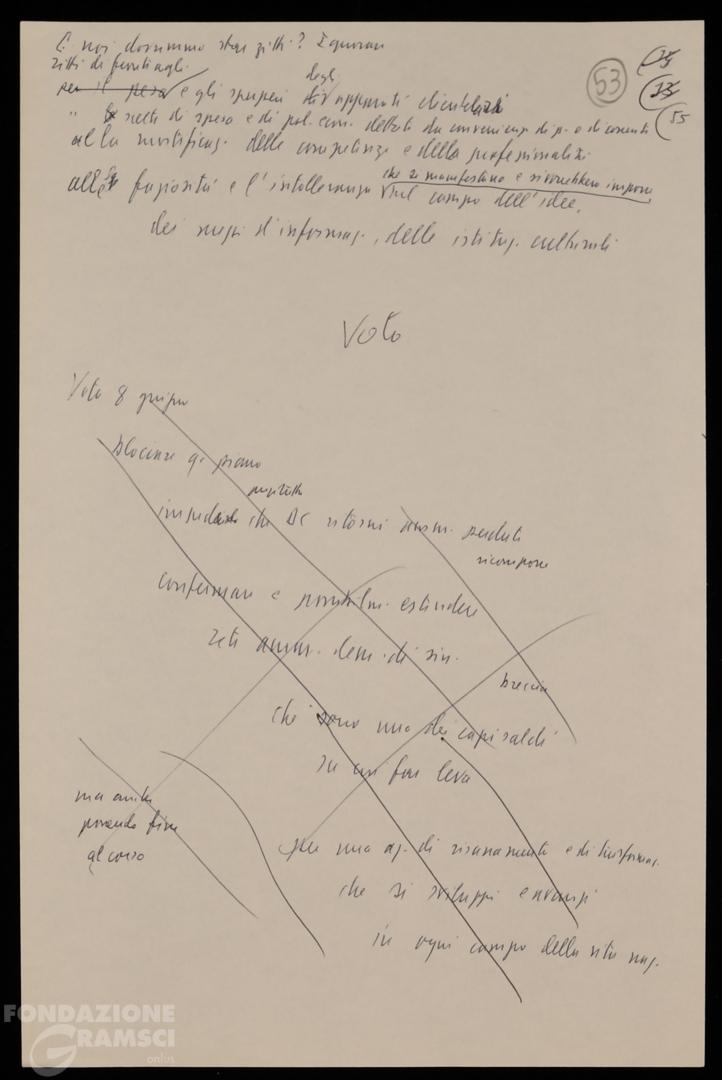 E noi dovremmo stare zitti?
zitti di fronte agli
per il peso e gli sperperi degli apparati clientelari
" scelte di spesa e di pol. econ. dettate da convenienze di p. e di correnti
alla mortificaz. delle competenze e della professionalità
alla faziosità e l'intolleranza che si manifestano e si vorrebbero imporre nel campo dell'idee,
dei mezzi d'informaz., delle istituz. culturali
53
25
55
Voto
Voto 8 giugno
bloccare q. piano
impedendo che DC ritorni amm. perdute
riconquore
confermare e possibilm. estendere
reti amm. dem. di sin.
breccia
che sono uno dei capisaldi
su cui far leva
ma anche
ponendo fine
al corso
per una op. di risanamento e di trasformaz.
che si sviluppi e avanzi
in ogni campo della vita naz.
FONDAZIONE
GRAMSCI
onlus